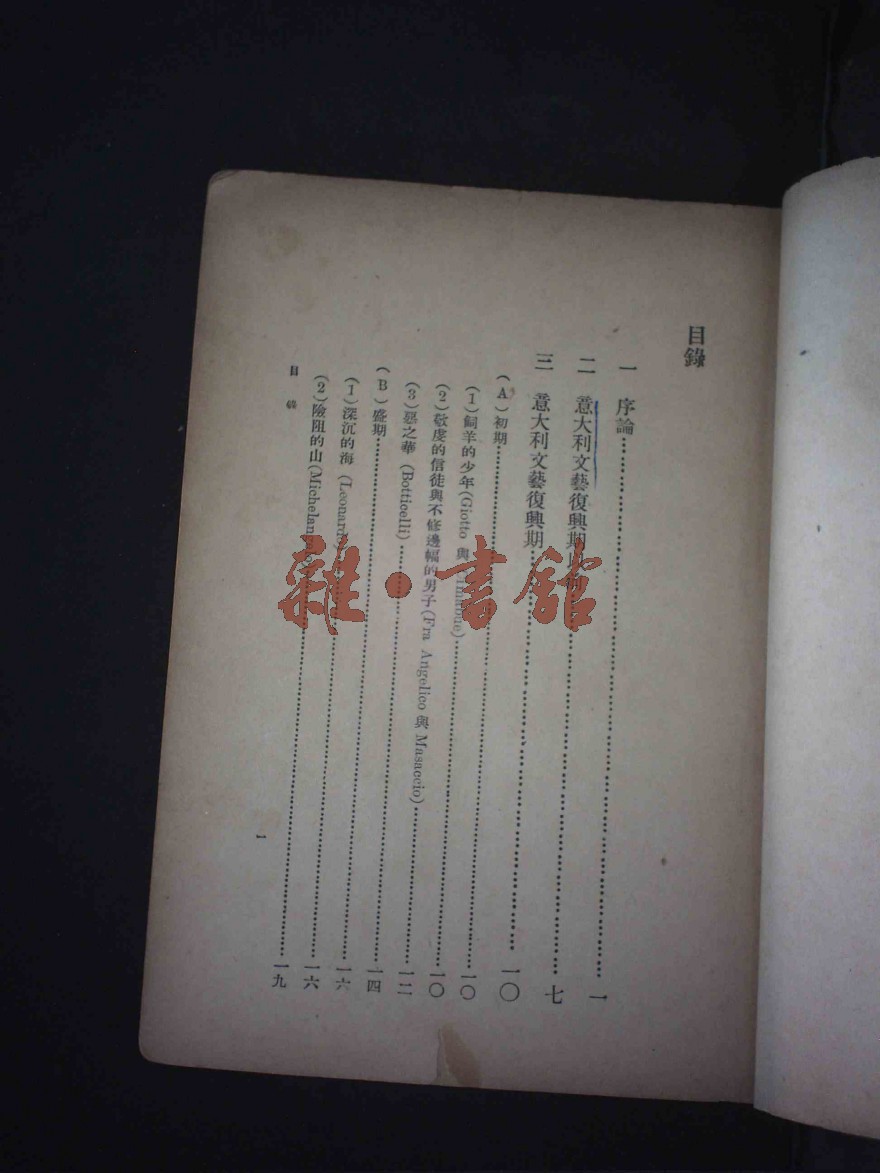 目錄
一 序論……一
二 意大利文藝復興期以前……七
三 意大利文藝復興期……一〇
(A)初期……一〇
(1)飼羊的少年(Giotto 與 Cimabue)……一〇
(2)敬虔的信徒與不修邊幅的男子(Fra Angelico 與 Masaccio)……一二
(3)惡之華 (Botticelli)……一四
(B)盛期……一六
(1)深沉的海 (Leonardo)……一六
(2)險阻的山(Michelangelo)……一九
目錄
1
雜·書館